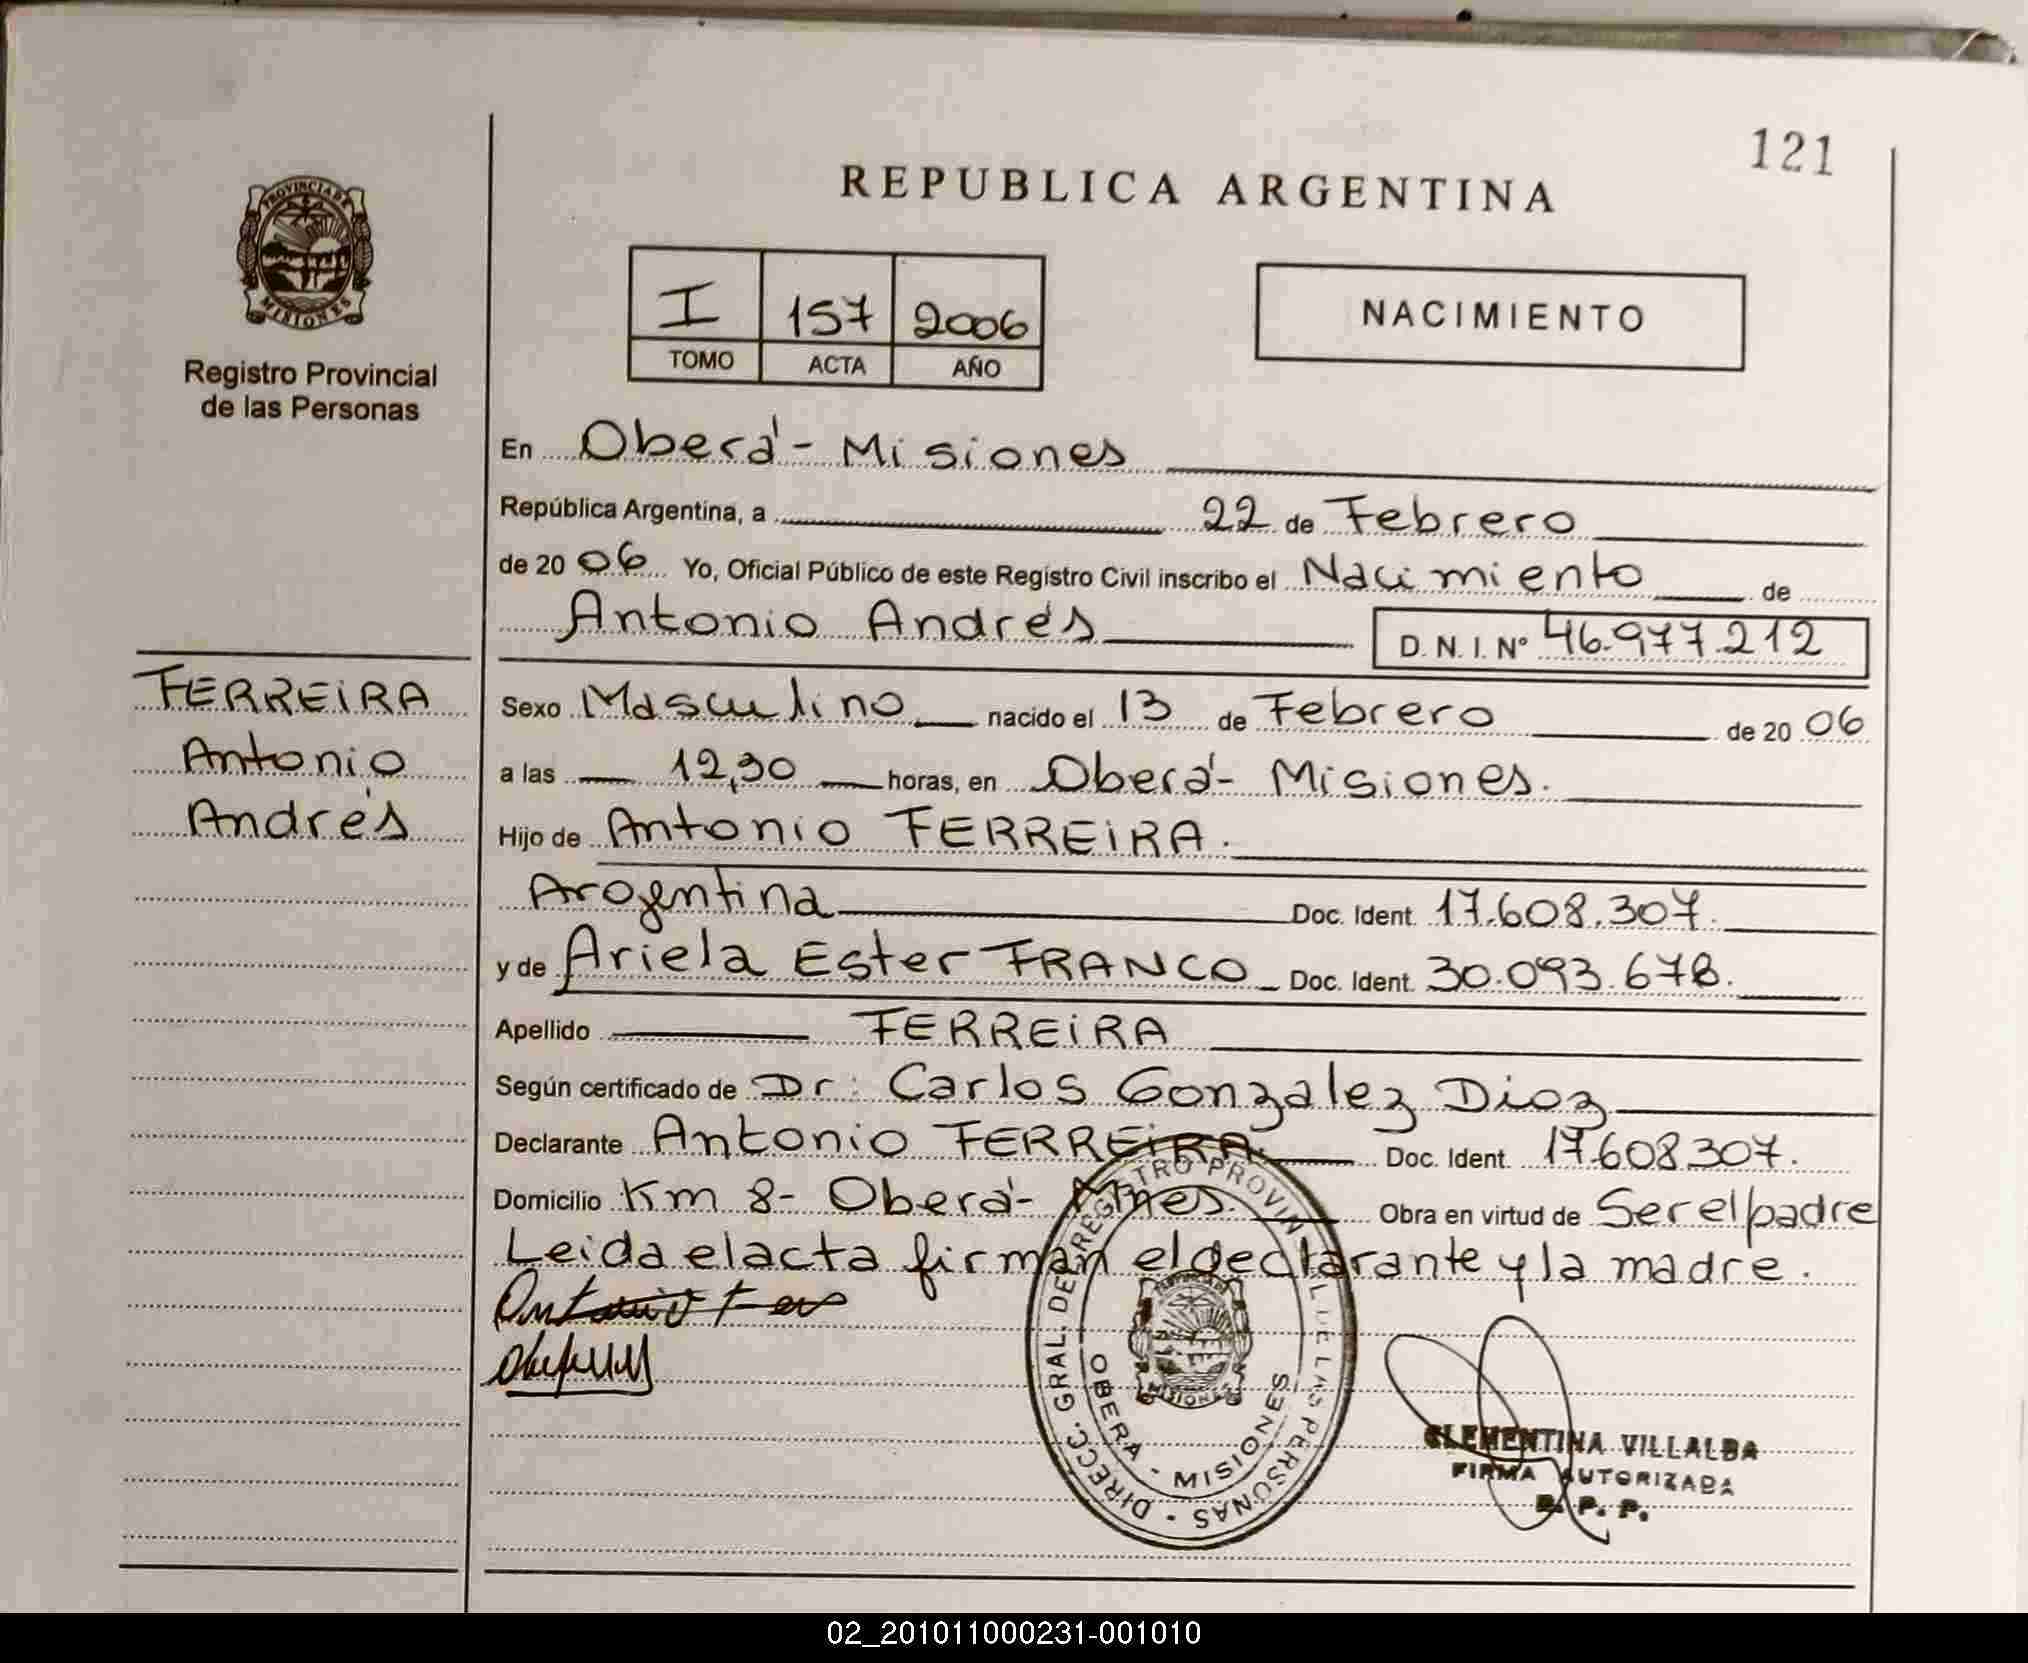 121
REPUBLICA ARGENTINA
PROVINCIA DE
MISIONES
Registro Provincial
de las Personas
I 157 2006
TOMO ACTA AÑO
NACIMIENTO
En Oberá - Misiones
República Argentina, a 22 de Febrero
de 20 06 Yo, Oficial Público de este Registro Civil inscribo el Nacimiento de
Antonio Andrés D. N. I. Nº 46.977.212
FERREIRA
Antonio
Andrés
Sexo Masculino nacido el 13 de Febrero de 20 06
a las 12,30 horas, en Oberá - Misiones.
Hijo de Antonio FERREIRA.
Argentina Doc. Ident. 17.608.307.
y de Ariela Ester FRANCO Doc. Ident. 30.093.678.
Apellido FERREIRA
Según certificado de Dr: Carlos Gonzalez Dioz
Declarante Antonio FERREIRA. Doc. Ident. 17.608307.
Domicilio Km 8 - Oberá - Mnes. Obra en virtud de Ser el padre
Leida el acta firman el declarante y la madre.
DIRECC. GRAL. DE REGISTRO PROVINCIAL DE LAS PERSONAS
OBERA - MISIONES
MISIONES
CLEMENTINA VILLALBA
FIRMA AUTORIZADA
R. P. P.
02_201011000231-001010